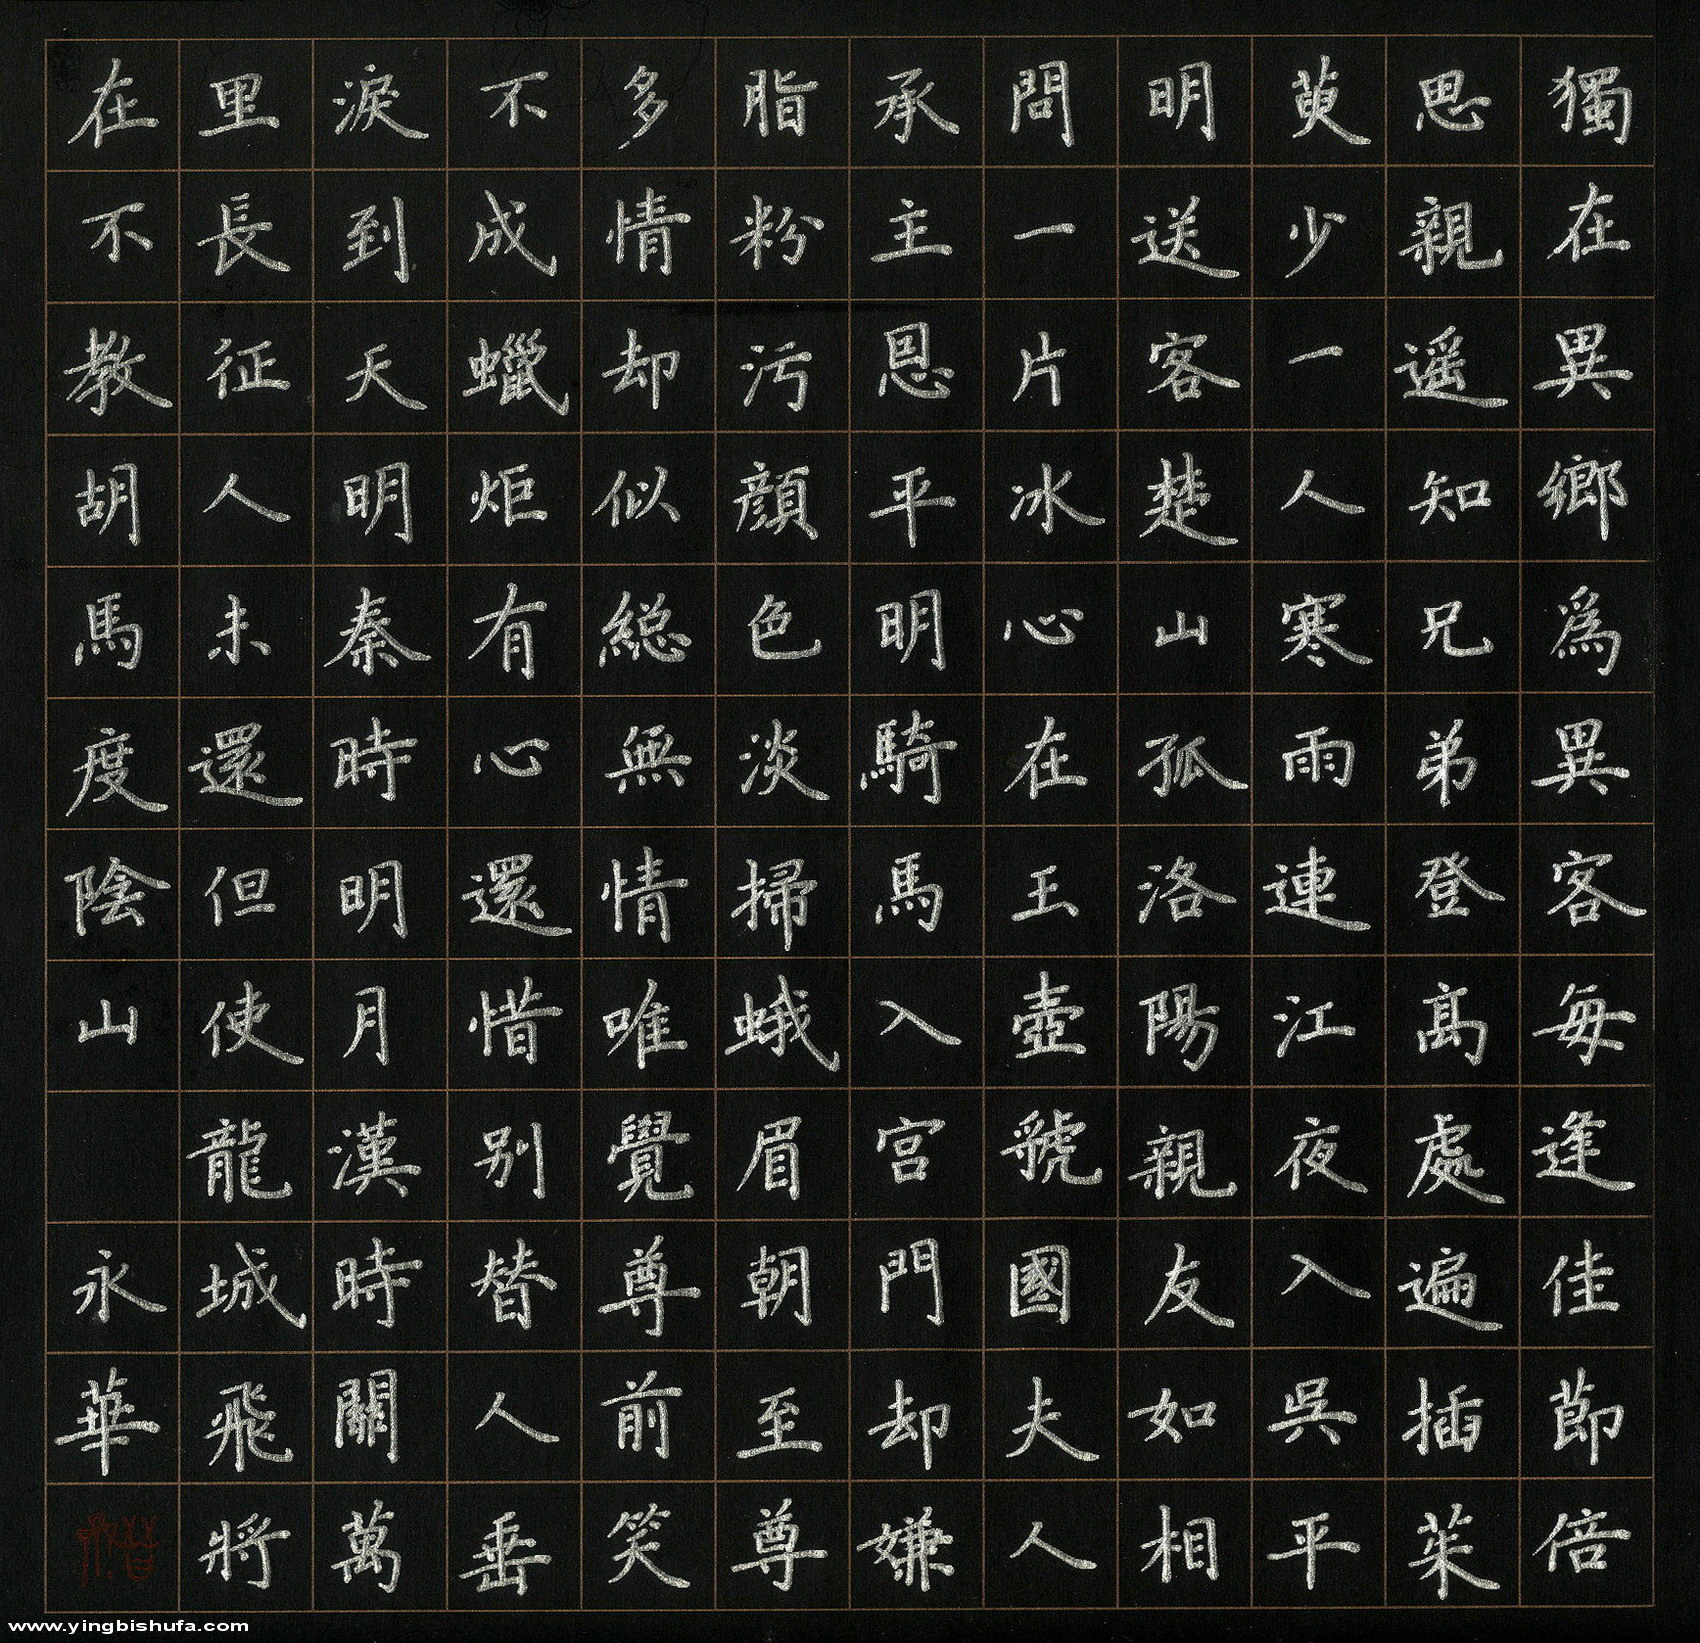 獨在異鄉爲異客每逢佳節倍
思親遥知兄弟登高處遍插茱
萸少一人寒雨連江夜入吳平
明送客楚山孤洛陽親友如相
問一片冰心在玉壺虢國夫人
承主恩平明騎馬入宫門却嫌
脂粉污顔色淡掃蛾眉朝至尊
多情却似總無情唯覺尊前笑
不成蠟炬有心還惜别替人垂
淚到天明秦時明月漢時關萬
里長征人未還但使龍城飛將
在不教胡馬度陰山 永華
www.yingbishufa.com